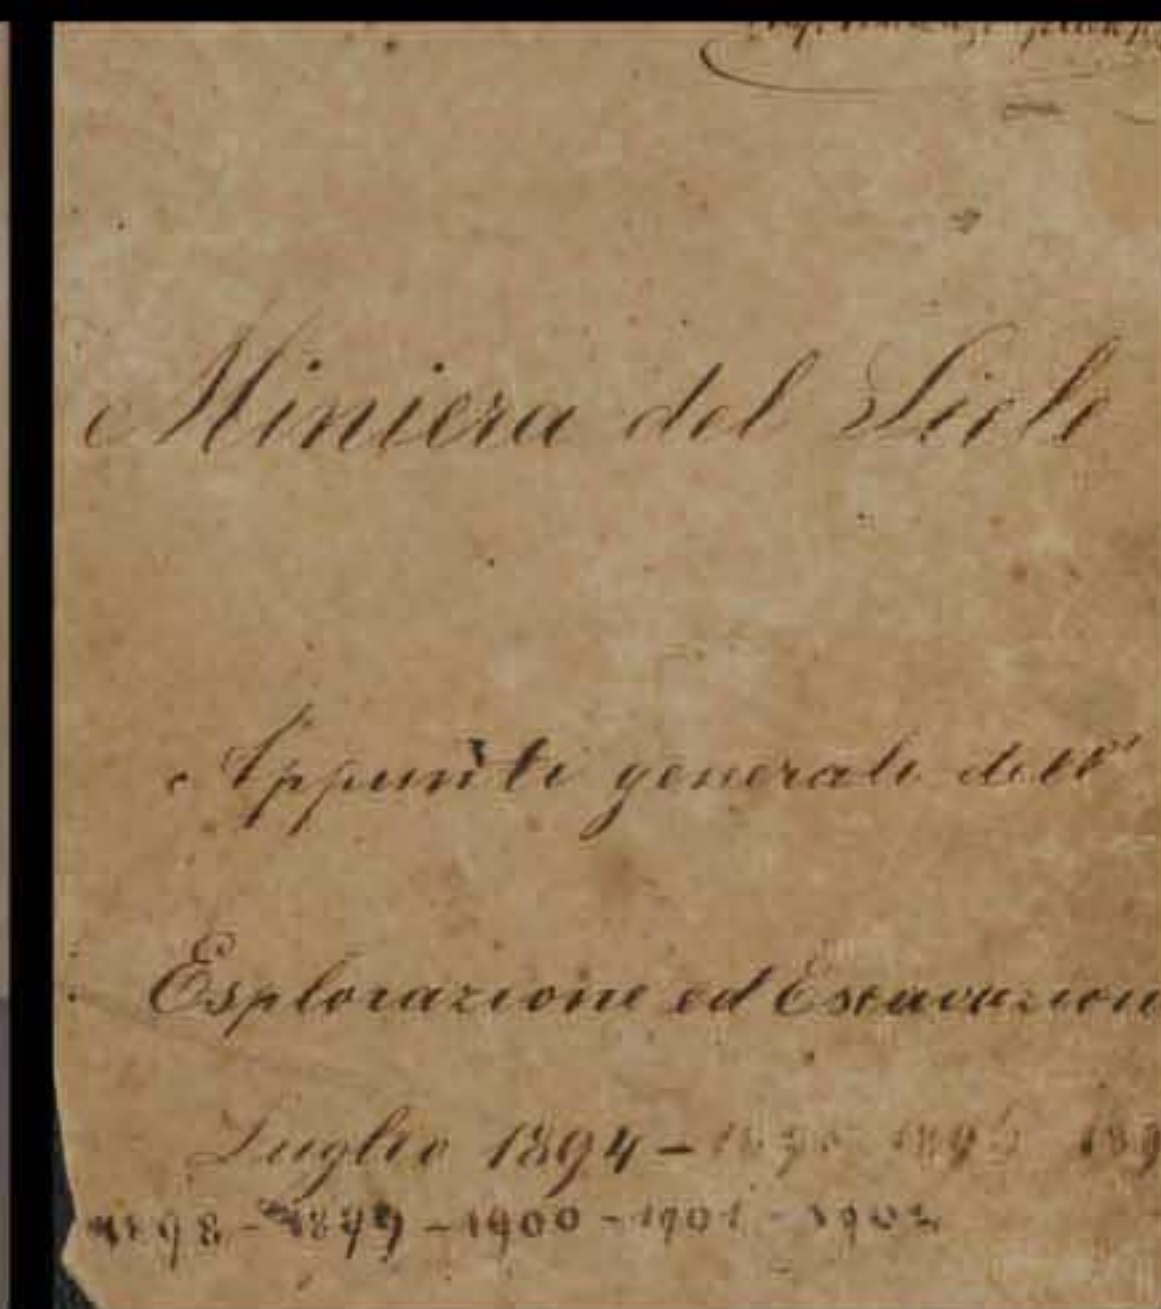 Miniera del Siele
Appunti generali dell'
Esplorazione ed Escavazion
Luglio 1894 -
1898 - 1899 - 1900 - 1901 - 1902